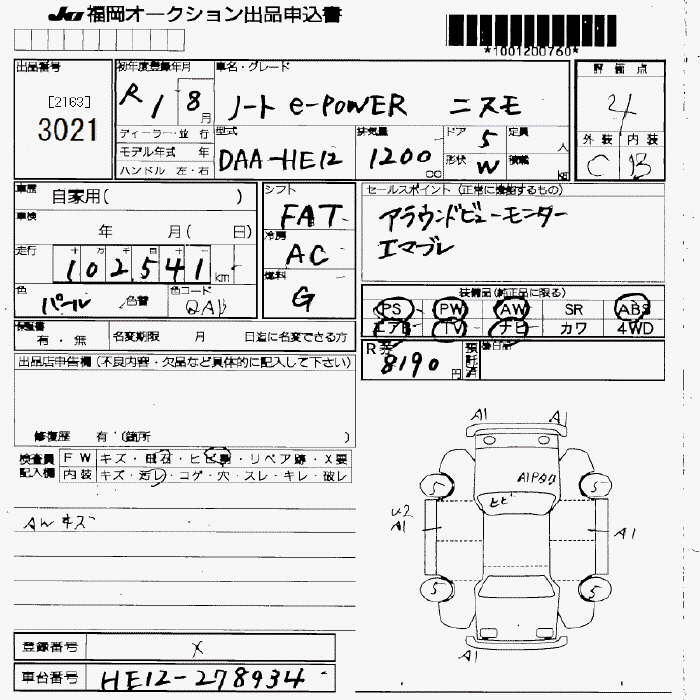 JU 福岡オークション出品申込書
*1001200760*
出品番号
[2163]
3021
初年度登録年月
R1 8月
車名・グレード
ノート e-POWER ニスモ
評価点
4
外装 内装
C B
ディーラー・並行
モデル年式 年
ハンドル 左・右
型式
DAA-HE12
排気量
1200 cc
ドア 5
形状 W
定員 人
積載 kg
車歴 自家用( )
車検 年 月( 日)
走行 十 万 千 百 十 一
102,541 km
色 パール 色替 色コード QAB
シフト
FAT
冷房
AC
燃料
G
セールスポイント (正常に機能するもの)
アラウンドビューモニター
エマブレ
装備品(純正品に限る)
PS PW AW SR ABS
エアB TV ナビ カワ 4WD
保証書 有・無 名変期限 月 日迄に名変できる方
R券 8190円 預託済 後日品
出品店申告欄(不良内容・欠品など具体的に記入して下さい)
修復歴 有 (箇所 )
検査員記入欄
FW キズ・飛石・ヒビ割・リペア跡・X要
内装 キズ・汚レ・コゲ・穴・スレ・キレ・破レ
AWキズ
A1 A1
A1Pタク
ヒビ
5 5
U2
A1 A1
5 5
A1
登録番号 X
車台番号 HE12-278934